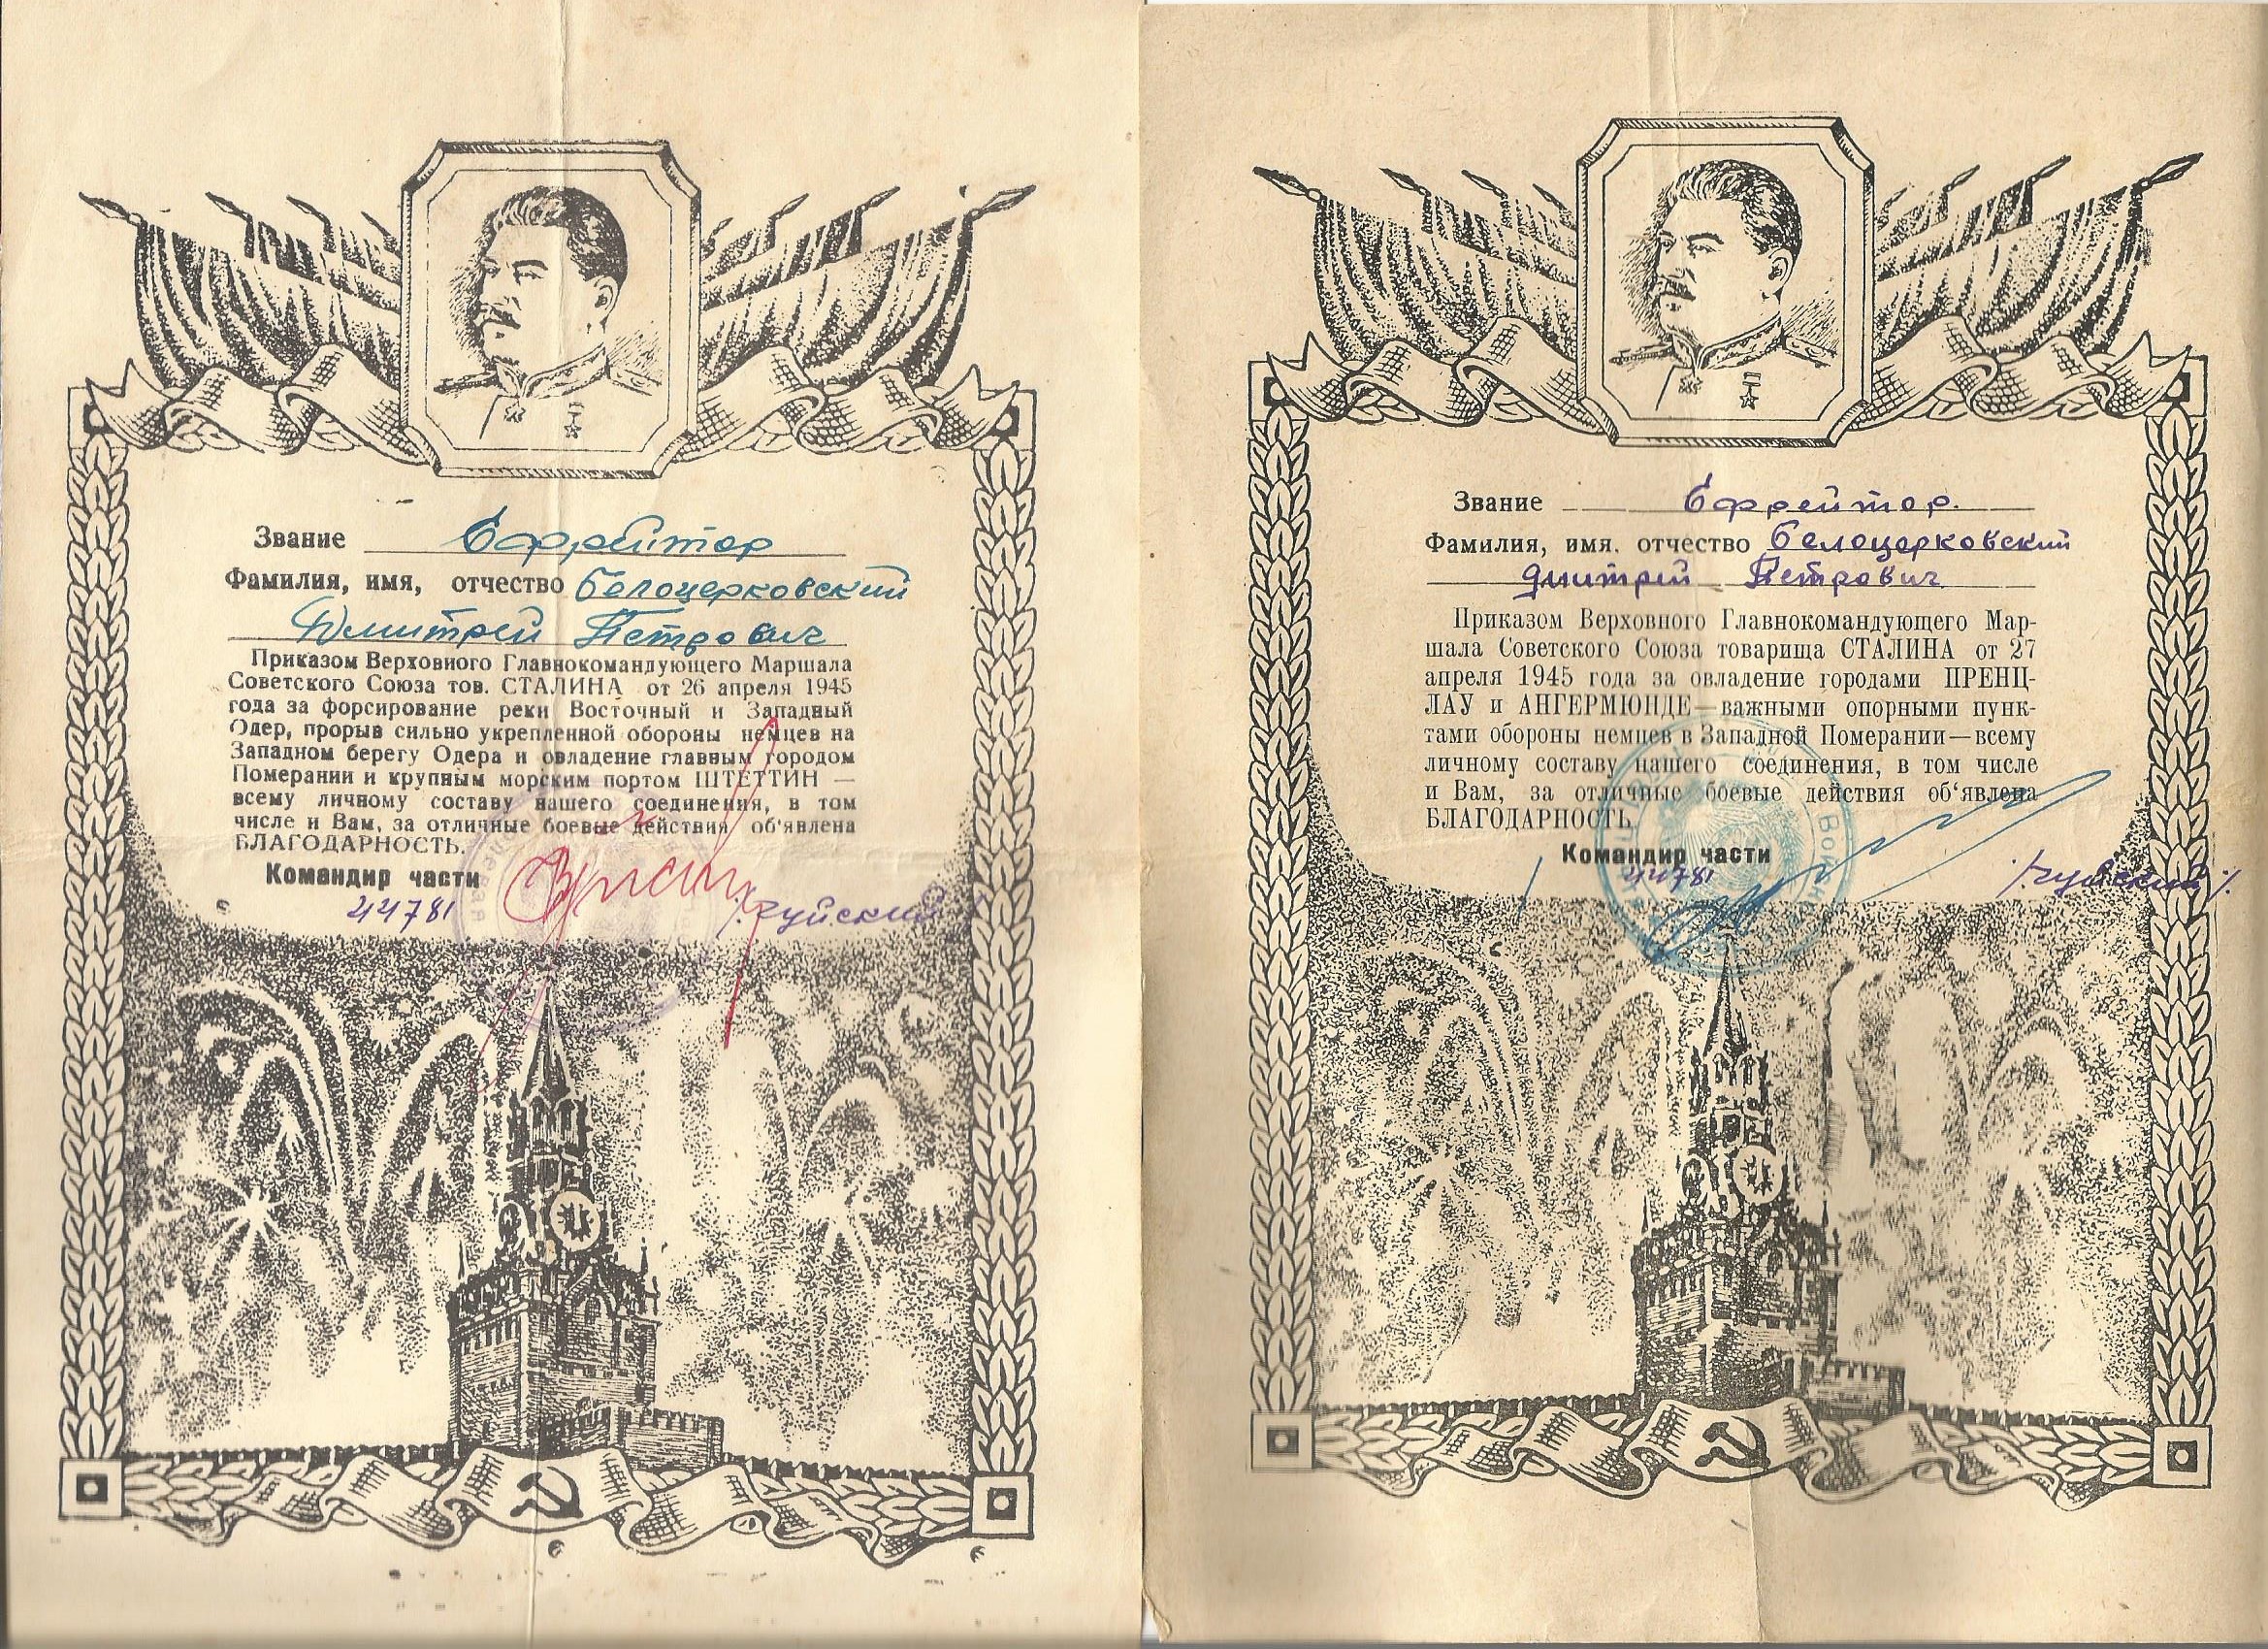 Звание Ефрейтор
Фамилия, имя, отчество Белоцерковский
Дмитрей Петрович
Приказом Верховного Главнокомандующего Маршала
Советского Союза тов. СТАЛИНА от 26 апреля 1945
года за форсирование реки Восточный и Западный
Одер, прорыв сильно укрепленной обороны немцев на
Западном берегу Одера и овладение главным городом
Померании и крупным морским портом ШТЕТТИН —
всему личному составу нашего соединения, в том
числе и Вам, за отличные боевые действия об'явлена
БЛАГОДАРНОСТЬ.
Командир части
44781
Звание Ефрейтор.
Фамилия, имя. отчество Белоцерковский
Дмитрий Петрович
Приказом Верховного Главнокомандующего Мар-
шала Советского Союза товарища СТАЛИНА от 27
апреля 1945 года за овладение городами ПРЕНЦ-
ЛАУ и АНГЕРМЮНДЕ—важными опорными пунк-
тами обороны немцев в Западной Померании—всему
личному составу нашего соединения, в том числе
и Вам, за отличные боевые действия об'явлена
БЛАГОДАРНОСТЬ.
Командир части
44781